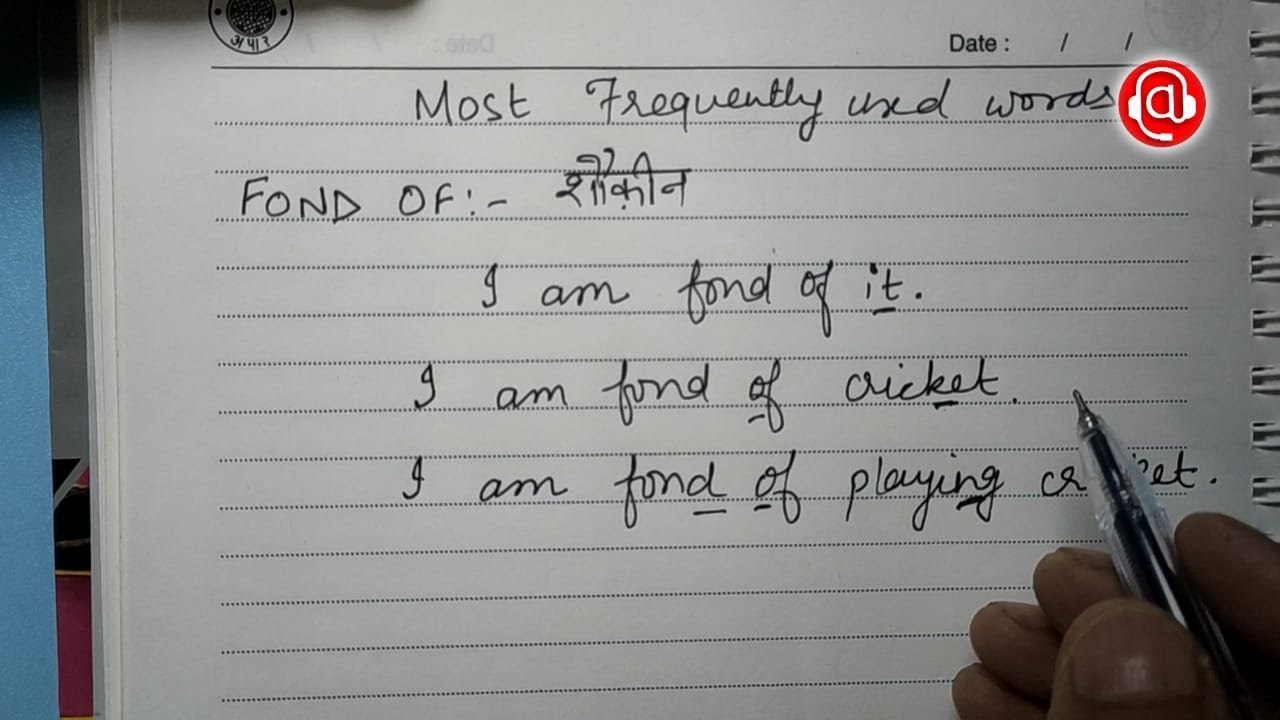 अपार
Date : / /
Most Frequently used words
FOND OF:- शौकीन
I am fond of it.
I am fond of cricket.
I am fond of playing